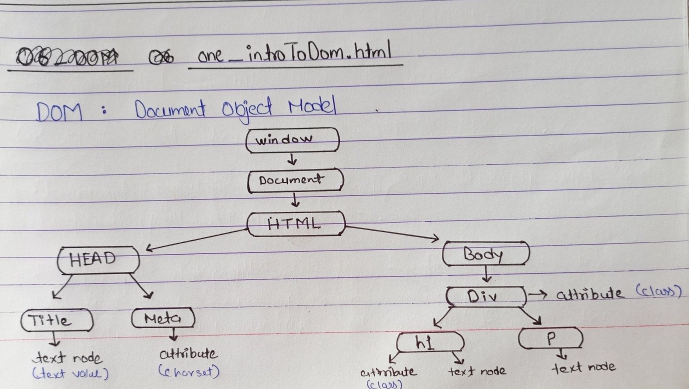 one_introToDom.html
DOM : Document Object Model
window
Document
HTML
HEAD
Body
Div → attribute (class)
Title
Meta
h1
P
text node
(text value)
attribute
(charset)
attribute
(class)
text node
text node